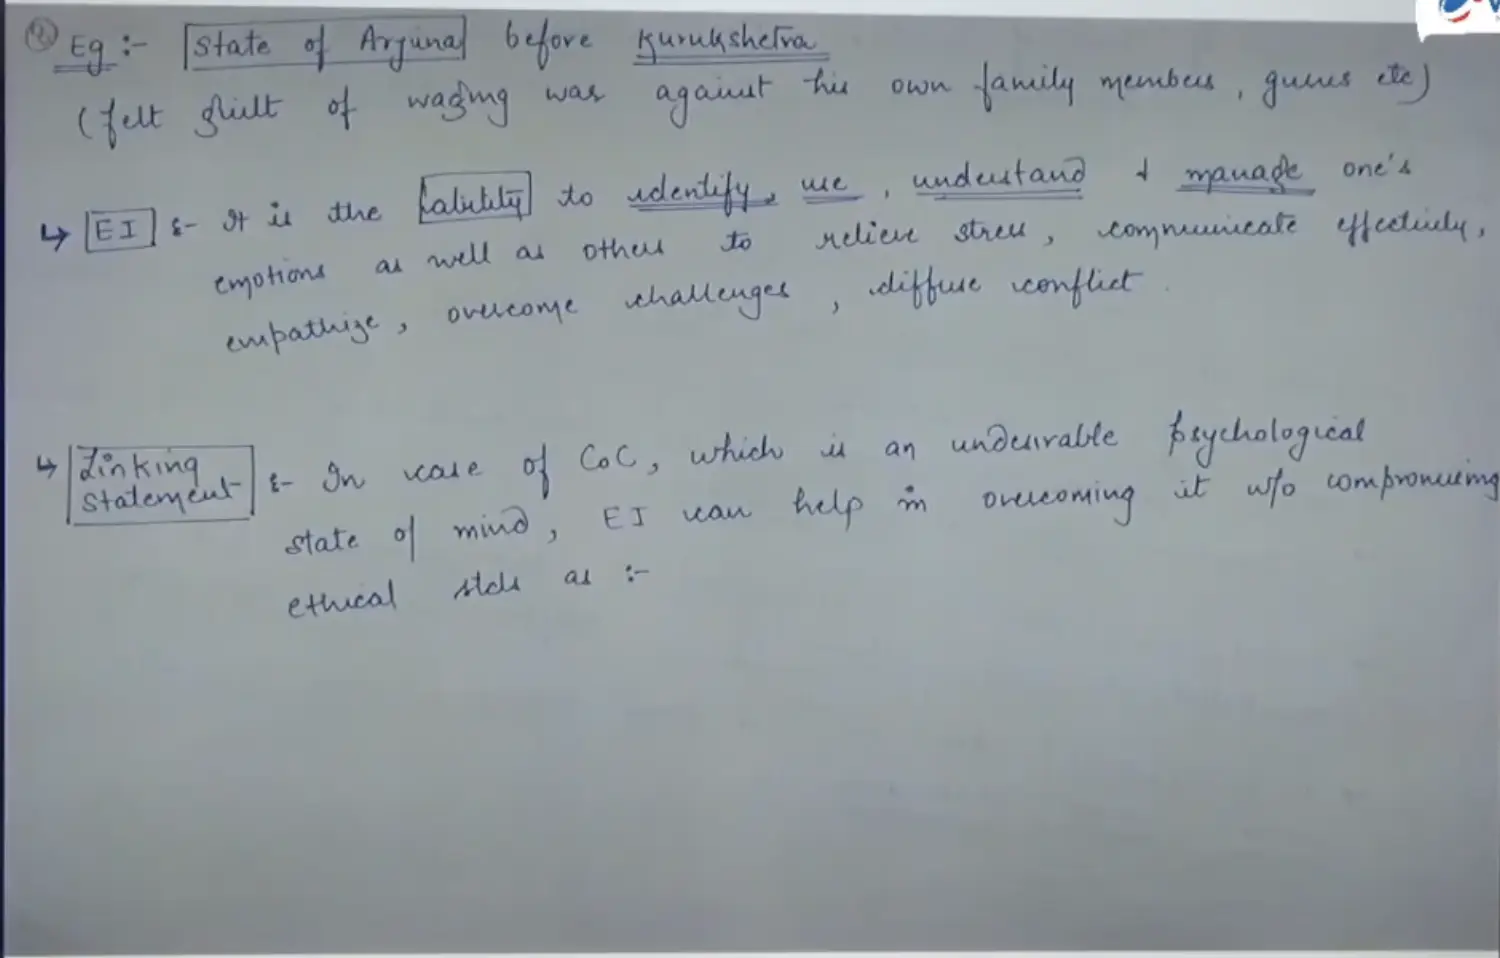 ② Eg :- State of Arjuna before Kurukshetra
(felt guilt of waging war against his own family members, gurus etc)
↳ EI :- It is the ability to identify, use, understand & manage one's
emotions as well as others to relieve stress, communicate effectively,
empathize, overcome challenges, diffuse conflict.
↳ Linking Statement :- In case of CoC, which is an undesirable psychological
state of mind, EI can help in overcoming it w/o compromising
ethical stds as :-